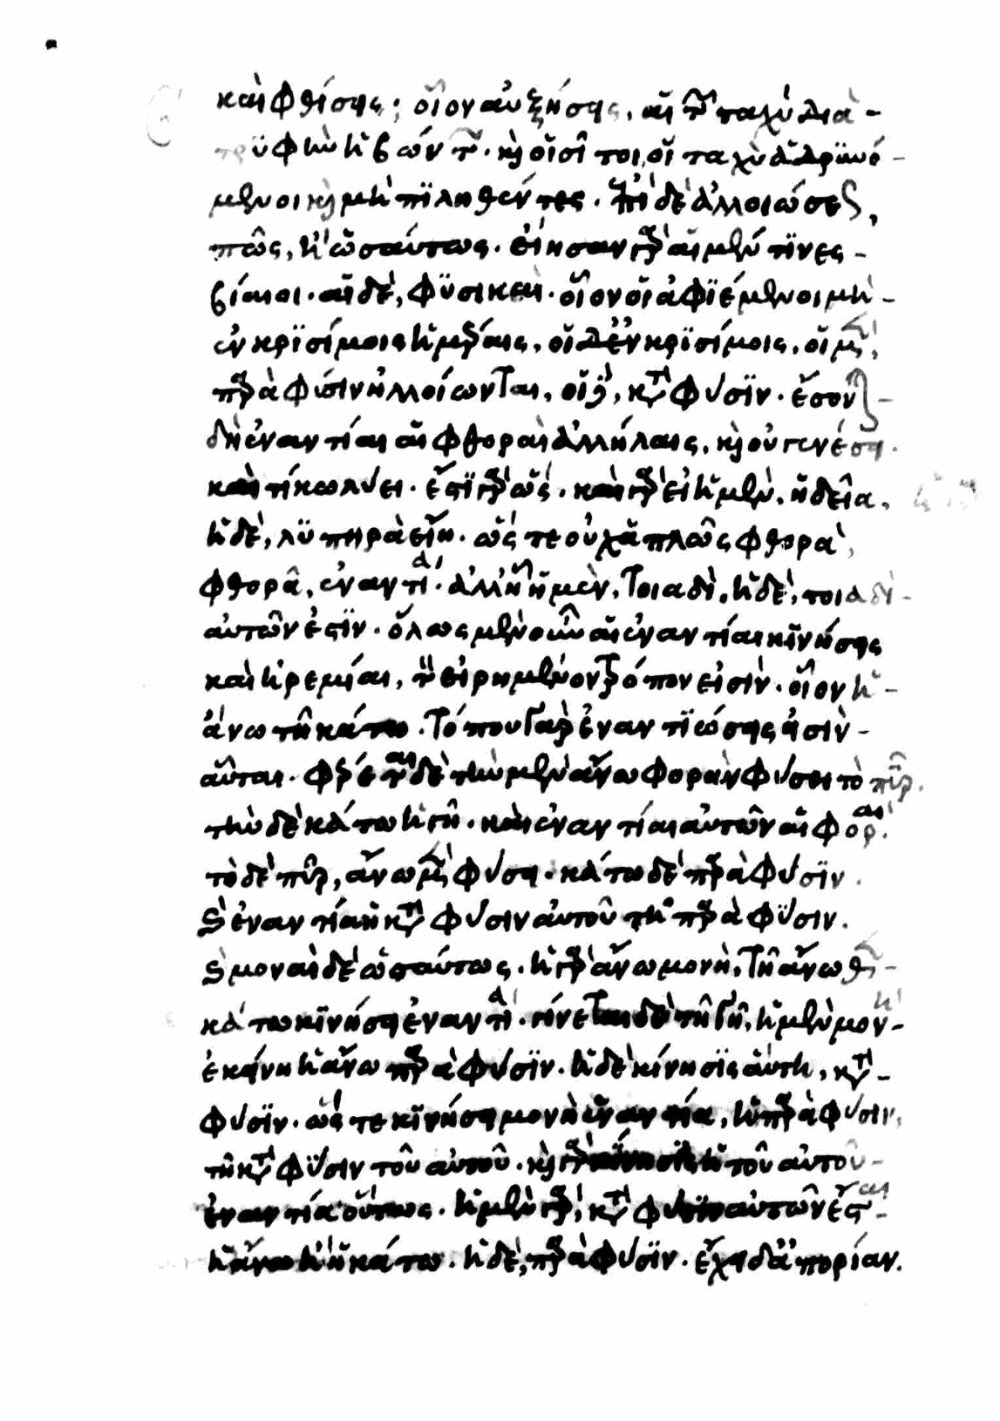 καὶ φθίσεις; οἷον αὐξήσεις, αἱ τῶν ταχὺ διὰ -
τρυφὴν ἡβώντων. καὶ οἱ σῖτοι οἱ ταχὺ ἁδρυνό -
μενοι καὶ μὴ πιληθέντες. ἐπὶ δὲ ἀλλοιώσεως,
πῶς, ἢ ὡσαύτως. εἴησαν γὰρ αἱ μὲν τινὲς -
βίαιοι. αἱ δὲ, φυσικαὶ. οἷον οἱ ἀφιέμενοι μὴ -
ἐν κρισίμοις ἡμέραις, οἱ δ' ἐν κρισίμοις. οἱ μὲν,
παρὰ φύσιν ἠλλοίωνται, οἱ δὲ, κατὰ φύσιν. ἔσονται -
δὴ ἐναντίαι αἱ φθοραὶ ἀλλήλαις, καὶ οὐ γενέσει.
καὶ τί κωλύει. ἔστι γὰρ ὥς. καὶ γὰρ εἰ ἡ μὲν, ἡδεῖα,
ἡ δὲ, λυπηρὰ εἴη. ὥς τε οὐχ ἁπλῶς φθορὰ,
φθορᾷ, ἐναντία. ἀλλ' ᾗ ἡ μὲν, τοιαδὶ, ἡ δὲ, τοιαδὶ -
αὐτῶν ἐστιν. ὅλως μὲν οὖν αἱ ἐναντίαι κινήσεις
καὶ ἠρεμίαι, τὸν εἰρημένον τρόπον εἰσὶν. οἷον ἡ -
ἄνω τῇ κάτω. τόπου γὰρ ἐναντιώσεις εἰσὶν -
αὗται. φέρεται δὲ τὴν μὲν ἄνω φορὰν φύσει τὸ πῦρ.
τὴν δὲ κάτω ἡ γῆ. καὶ ἐναντίαι αὐτῶν αἱ φοραί.
τὸ δὲ πῦρ, ἄνω μὲν φύσει. κάτω δὲ παρὰ φύσιν.
καὶ ἐναντία ἡ κατὰ φύσιν αὐτοῦ τῇ παρὰ φύσιν.
καὶ μοναὶ δὲ ὡσαύτως. ἡ γὰρ ἄνω μονὴ, τῇ ἄνωθεν -
κάτω κινήσει ἐναντία. γίνεται δὲ τῇ γῇ, ἡ μὲν μονὴ -
ἐκείνη ἡ ἄνω παρὰ φύσιν. ἡ δὲ κίνησις αὕτη, κατὰ -
φύσιν. ὥς τε κινήσει μονὴ ἐναντία, ἡ παρὰ φύσιν,
τῇ κατὰ φύσιν τοῦ αὐτοῦ. καὶ γὰρ κίνησις ἡ τοῦ αὐτοῦ -
ἐναντία οὕτως. ἡ μὲν γὰρ, κατὰ φύσιν αὐτῶν ἔσται -
ἡ ἄνω ἢ ἡ κάτω. ἡ δὲ, παρὰ φύσιν. ἔχει δ' ἀπορίαν.